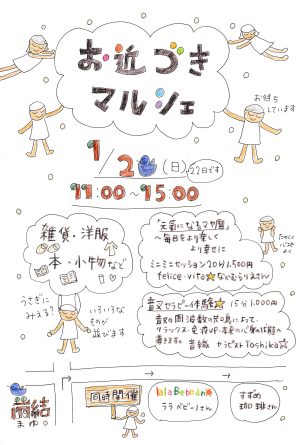 お近づき
マルシェ
お待ち
しています
1/22(日) 22日です
11:00〜15:00
雑貨・洋服
本・小物など
「元気になるマヤ暦」
〜毎日をより楽しく
より幸せに
ミニミニセッション20分1,500円
felice・vita☆なかむらりえさん
たのしく
うさぎに
みえる？
いろいろな
ものが
並びます
音叉セラピー体験☆ 15分1,000円
音叉の周波数の共鳴において、
リラックス・免疫UP・本来の心身の状態へ
導きます。 音織 セラピストYoshika☆
繭結
まゆ。
同時開催
lala Bebedin
ララベビーさん
すずめ
珈琲さん